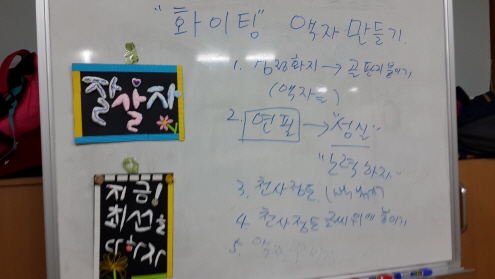 "화이팅" 액자 만들기
1. 검정화지 → 골판지붙이기
(액자틀)
2. 연필 → "성실"
"노력하자"
3. 천사점토
4. 천사점토 글씨위에 붙이기
5.
잘살자
지금!
최선을
다하자